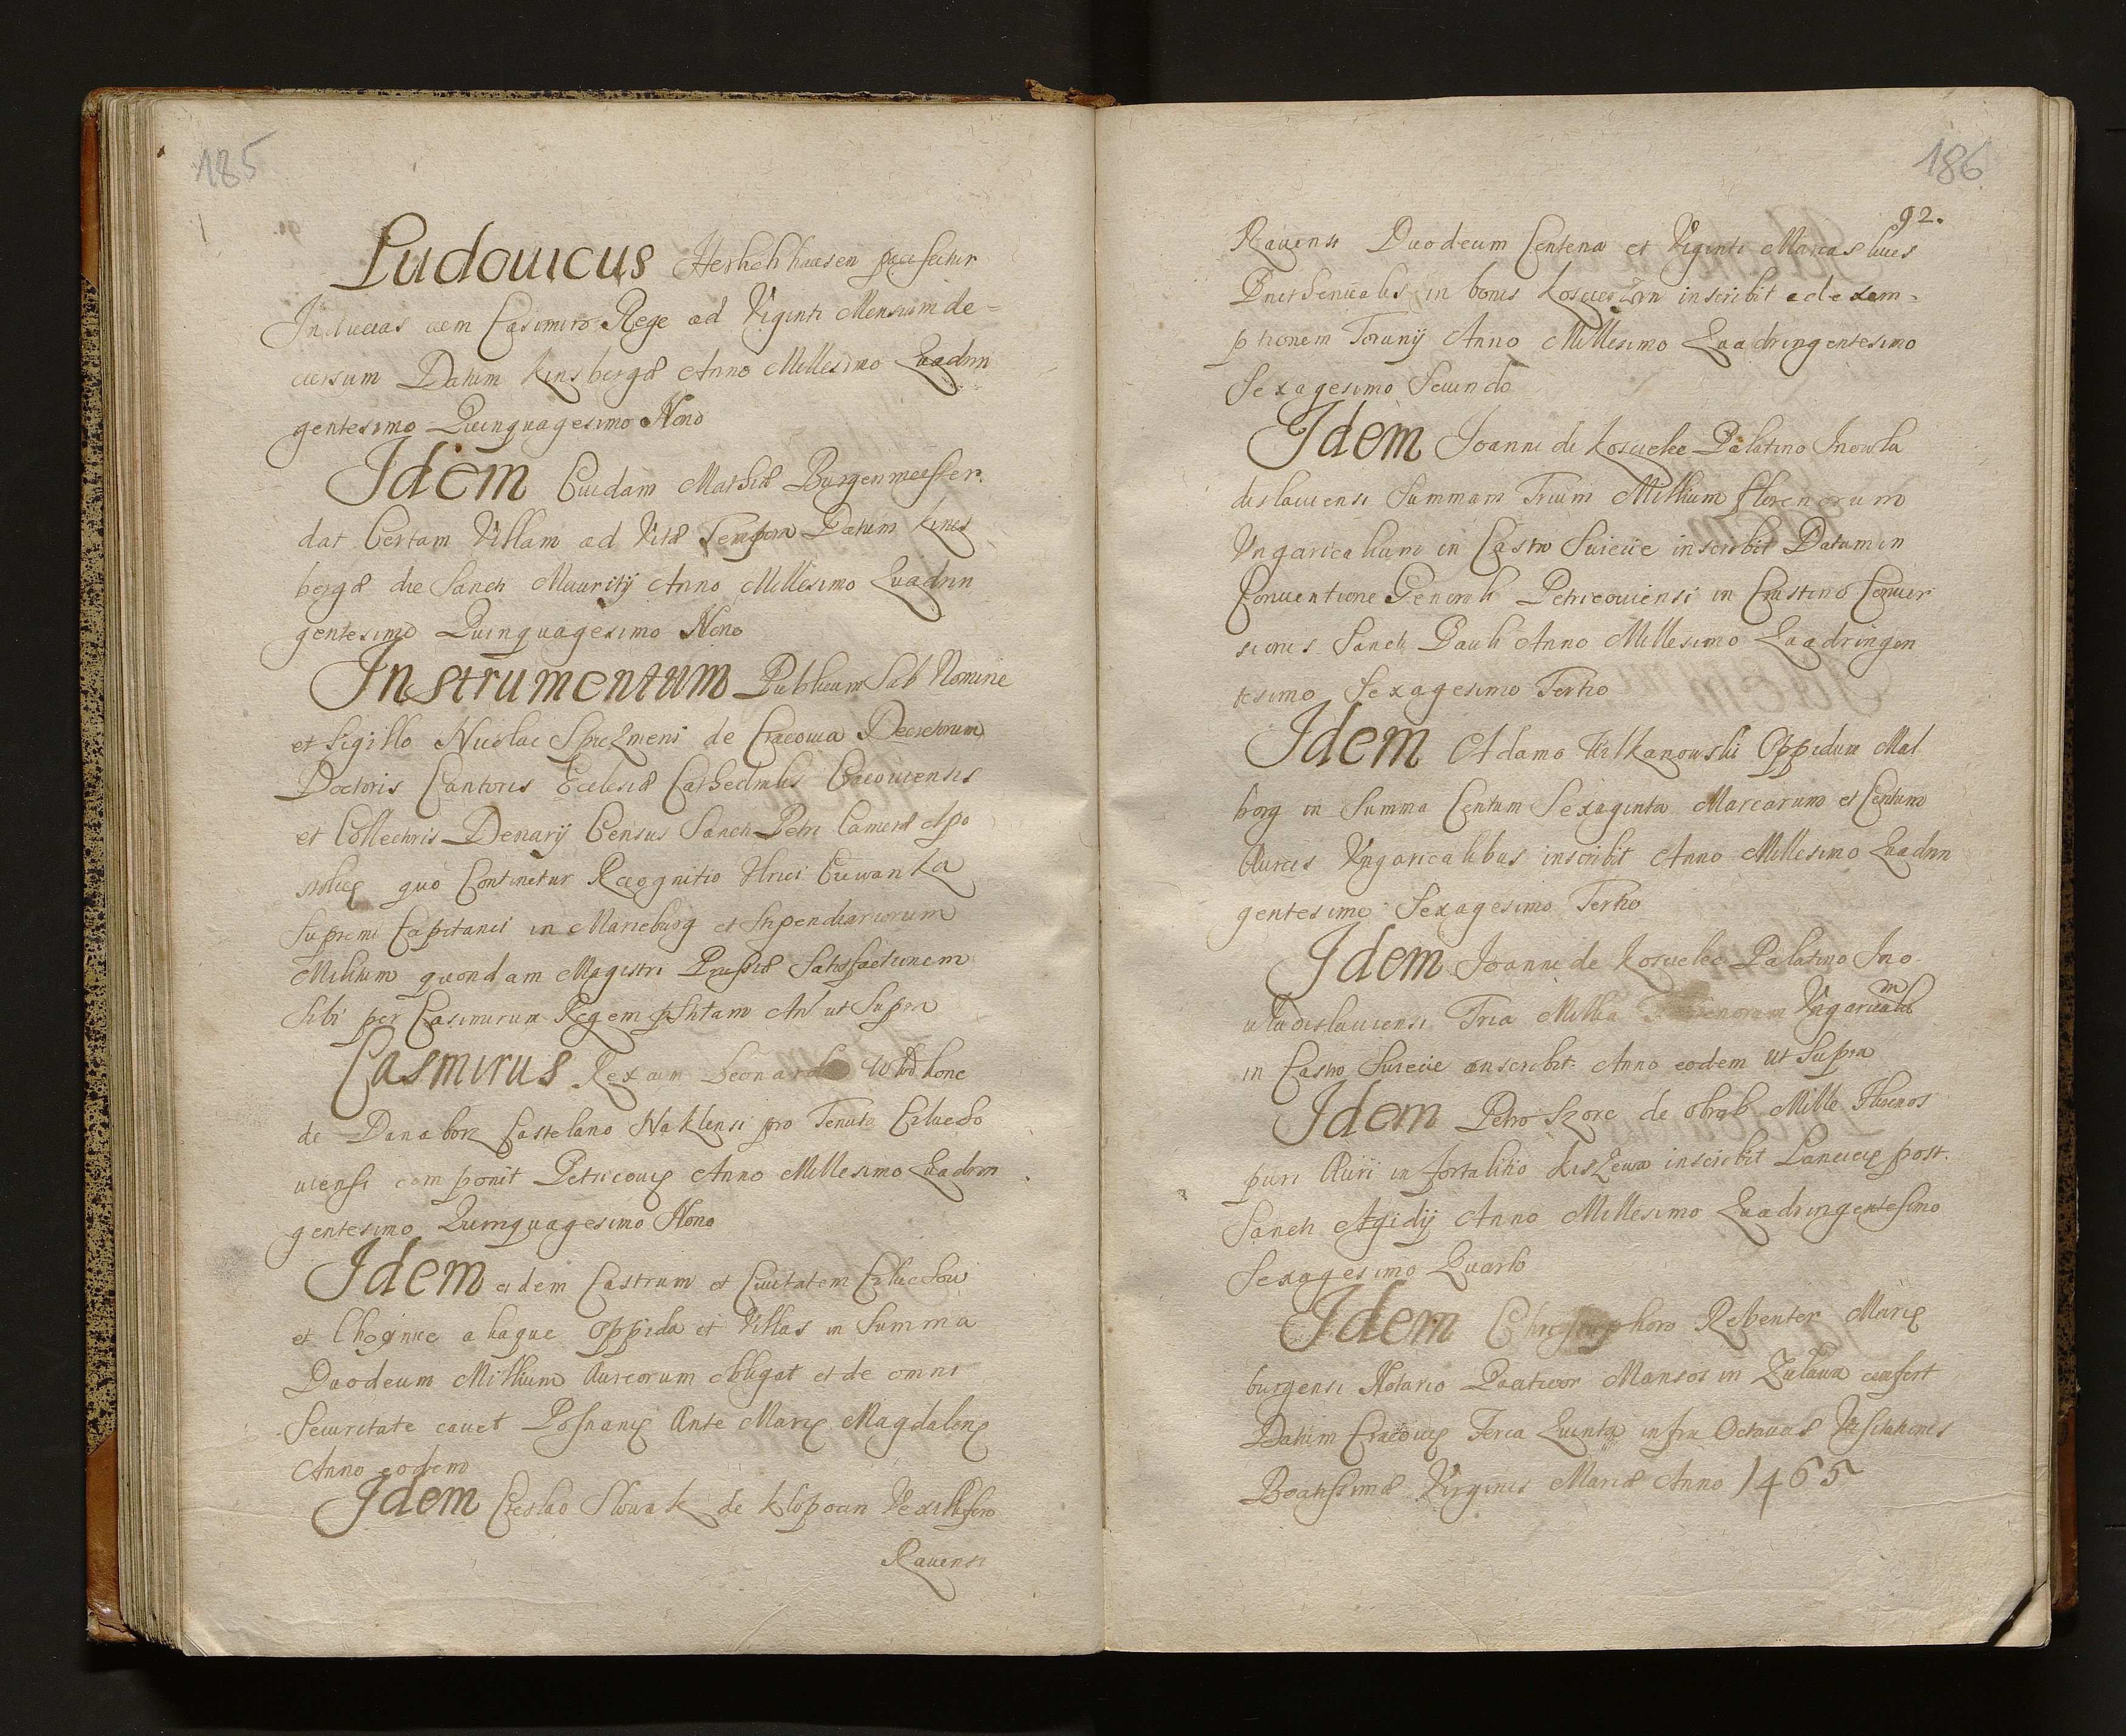 185
Ludouicus Herlichhausen paciscitur
Inducias cum Casimiro Rege ad Viginti Mensium de-
cursum Datum Kinsbergæ Anno Millesimo Quadrin
gentesimo Quinquagesimo Nono
Idem Cuidam Mathiæ Burgenmeister
dat Certam Villam ad Vitæ Tempora Datum Kines
bergæ die Sancti Mauritij Anno Millesimo Quadrin
gentesimo Quinquagesimo Nono
Instrumentum Publicum Sub Nomine
et Sigillo Nicolai Spiczmeni de Cracouia Decretorum
Doctoris Cantoris Eclesiæ Cathedralis Cracouiensis
et Collectoris Denarij Census Sancti Petri Cameræ Apo
stolicę quo Continetur Recognitio Ulrici Cuwanka
Supremi Capitanei in Marieburg et Stipendiariorum
Militum quondam Magistri Prussiæ Satisfactionem
Sibi per Casimirum Regem Anº ut Supra
Casmirus Rex cum Leonardo
de Danaborz Castelano Naklensi pro Tenuta Czluecho
uiensi componit Petricouię Anno Millesimo Quadrin
gentesimo Quinquagesimo Nono
Idem eidem Castrum et Ciuitatem Czluchow
et Choynice aliaque Oppida et Villas in Summa
Duodecim Millium Aureorum obligat et de omni
Securitate cauet Posnanię Ante Marię Magdalenę
Anno eodem
Idem Czeslao Slowak de Klopocin Vexillifero
Rauensi
186
92.
Rauensi Duodecim Centena et Viginti Marcas
in bonis inscribit ad exem-
ptionem Torunij Anno Millesimo Quadringentesimo
Sexagesimo Secundo
Idem Joanni de Koscielec Palatino Inowla
dislauiensi Summam Trium Millium florenorum
Vngaricalium in Castro Suiecie inscribit Datum in
Conuentione Generali Petricouiensi in Crastino Conuer
sionis Sancti Pauli Anno Millesimo Quadringen
tesimo Sexagesimo Tertio
Idem Adamo Wilkanowski Oppidum Mal
borg in Summa Centum Sexaginta Marcarum et Centum
Aureis Vngaricalibus inscribit Anno Millesimo Quadrin
gentesimo Sexagesimo Tertio
Idem Joanni de Koscielec Palatino Ino
uladislauiensi Tria Millia Florenorum Vngaricaliũ
in Castro Suiecie inscribit Anno eodem ut Supra
Idem Petro Szorc de obrąb Mille Florenos
puri Auri in fortalitio Kiszewa inscribit Lancicię post
Sancti Ægidij Anno Millesimo Quadringentesimo
Sexagesimo Quarto
Idem Christophoro Resenter Marię
burgensi Notario Quatuor Mansos in Zulawa confert
Datum Cracouię Feria Quinta infra Octauas Visitationis
Beatissimæ Virginis Mariæ Anno 1465